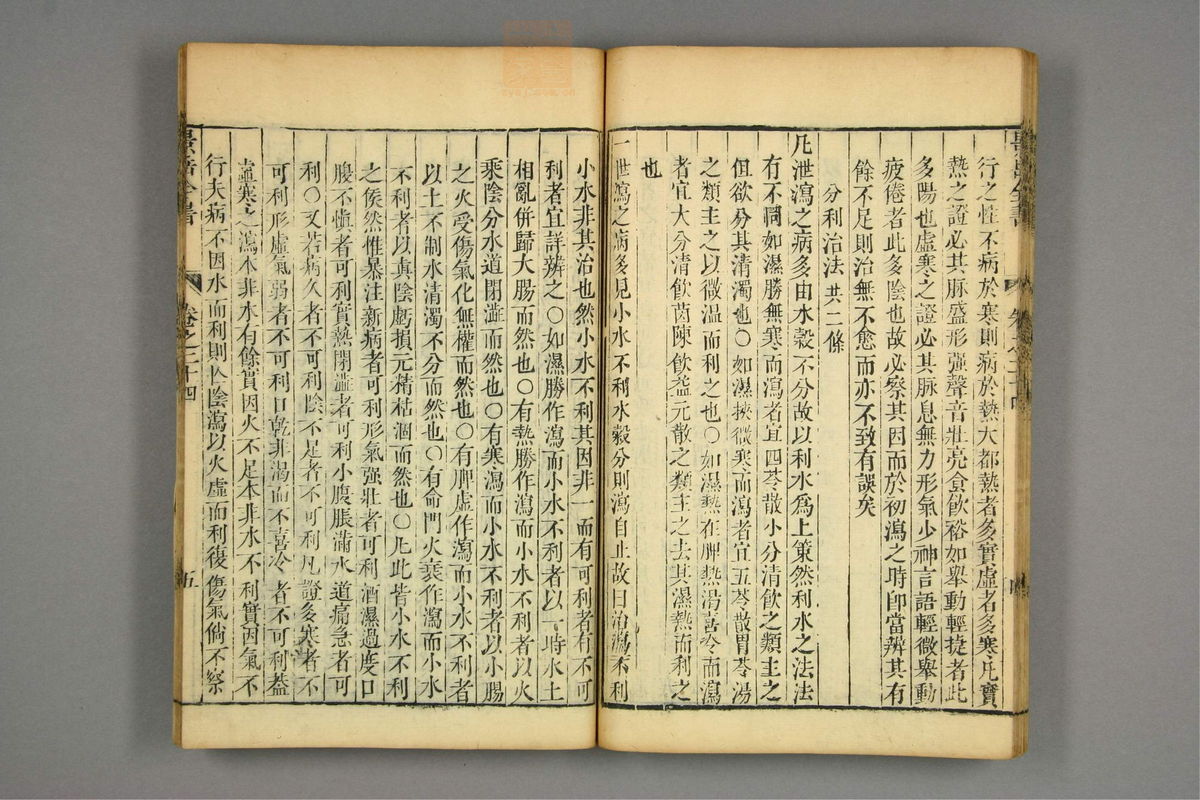 行之性不病於寒則病於熱大都熱者多實虛者多寒凡實
熱之證必其脉盛形强聲音壯亮食飲裕如舉動輕捷者此
多陽也虛寒之證必其脉息無力形氣少神言語輕微舉動
疲倦者此多陰也故必察其因而於初瀉之時卽當辨其有
餘不足則治無不愈而亦不致有誤矣
分利治法 共二條
凡泄瀉之病多由水穀不分故以利水爲上策然利水之法法
有不同如濕勝無寒而瀉者宜四苓散小分清飲之類主之
但欲分其清濁也○如濕挾微寒而瀉者宜五苓散胃苓湯
之類主之以微温而利之也○如濕熱在脾熱渴喜冷而瀉
者宜大分清飲茵陳飲益元散之類主之去其濕熱而利之
也
一泄瀉之病多見小水不利水穀分則瀉自止故曰治瀉不利
小水非其治也然小水不利其因非一而有可利者有不可
利者宜詳辨之○如濕勝作瀉而小水不利者以一時水土
相亂併歸大腸而然也○有熱勝作瀉而小水不利者以火
乘陰分水道閉澁而然也○有寒瀉而小水不利者以小腸
之火受傷氣化無權而然也○有脾虛作瀉而小水不利者
以土不制水清濁不分而然也○有命門火衰作瀉而小水
不利者以真陰虧損元精枯涸而然也○凡此皆小水不利
之候然惟暴注新病者可利形氣强壯者可利酒濕過度口
腹不慎者可利實熱閉澁者可利小腹脹滿水道痛急者可
利○又若病久者不可利陰不足者不可利脉證多寒者不
可利形虛氣弱者不可利口乾非渴而不喜冷者不可利蓋
虛寒之瀉本非水有餘實因火不足本非水不利實因氣不
行夫病不因水而利則亡陰瀉以火虛而利復傷氣倘不察
景岳全書
卷之二十四
五